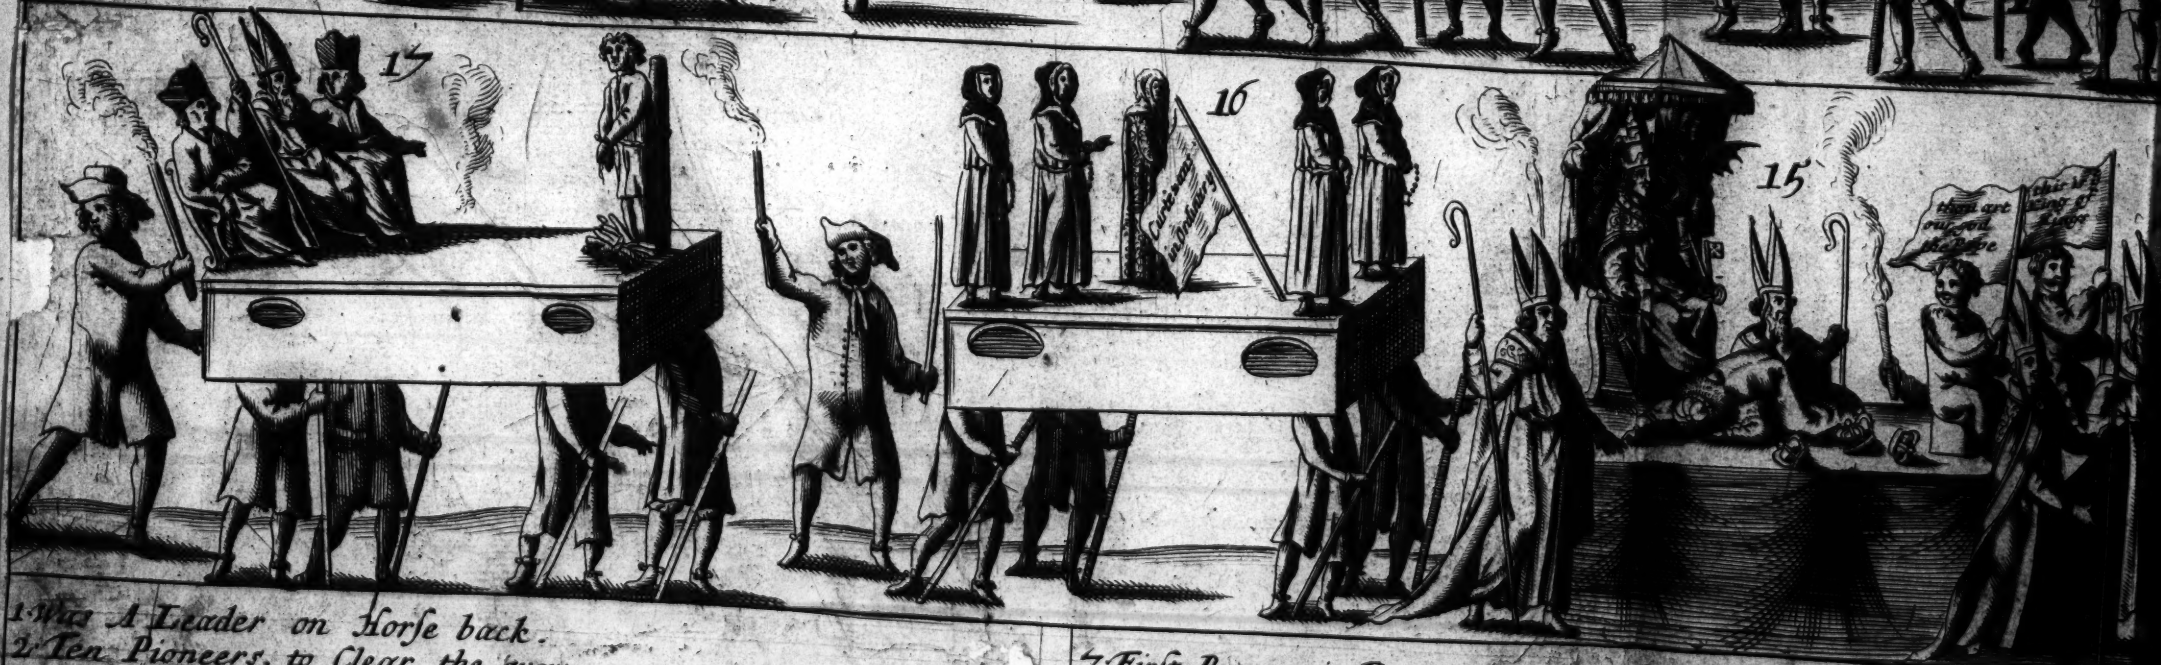 17
16
15
Curtezans
in Ordinary
thou art
our god
the Pope
this is
King of
Kings
1. Was A Leader on Horſe back.
2. Ten Pioneers, to Clear the way
7. Firſt